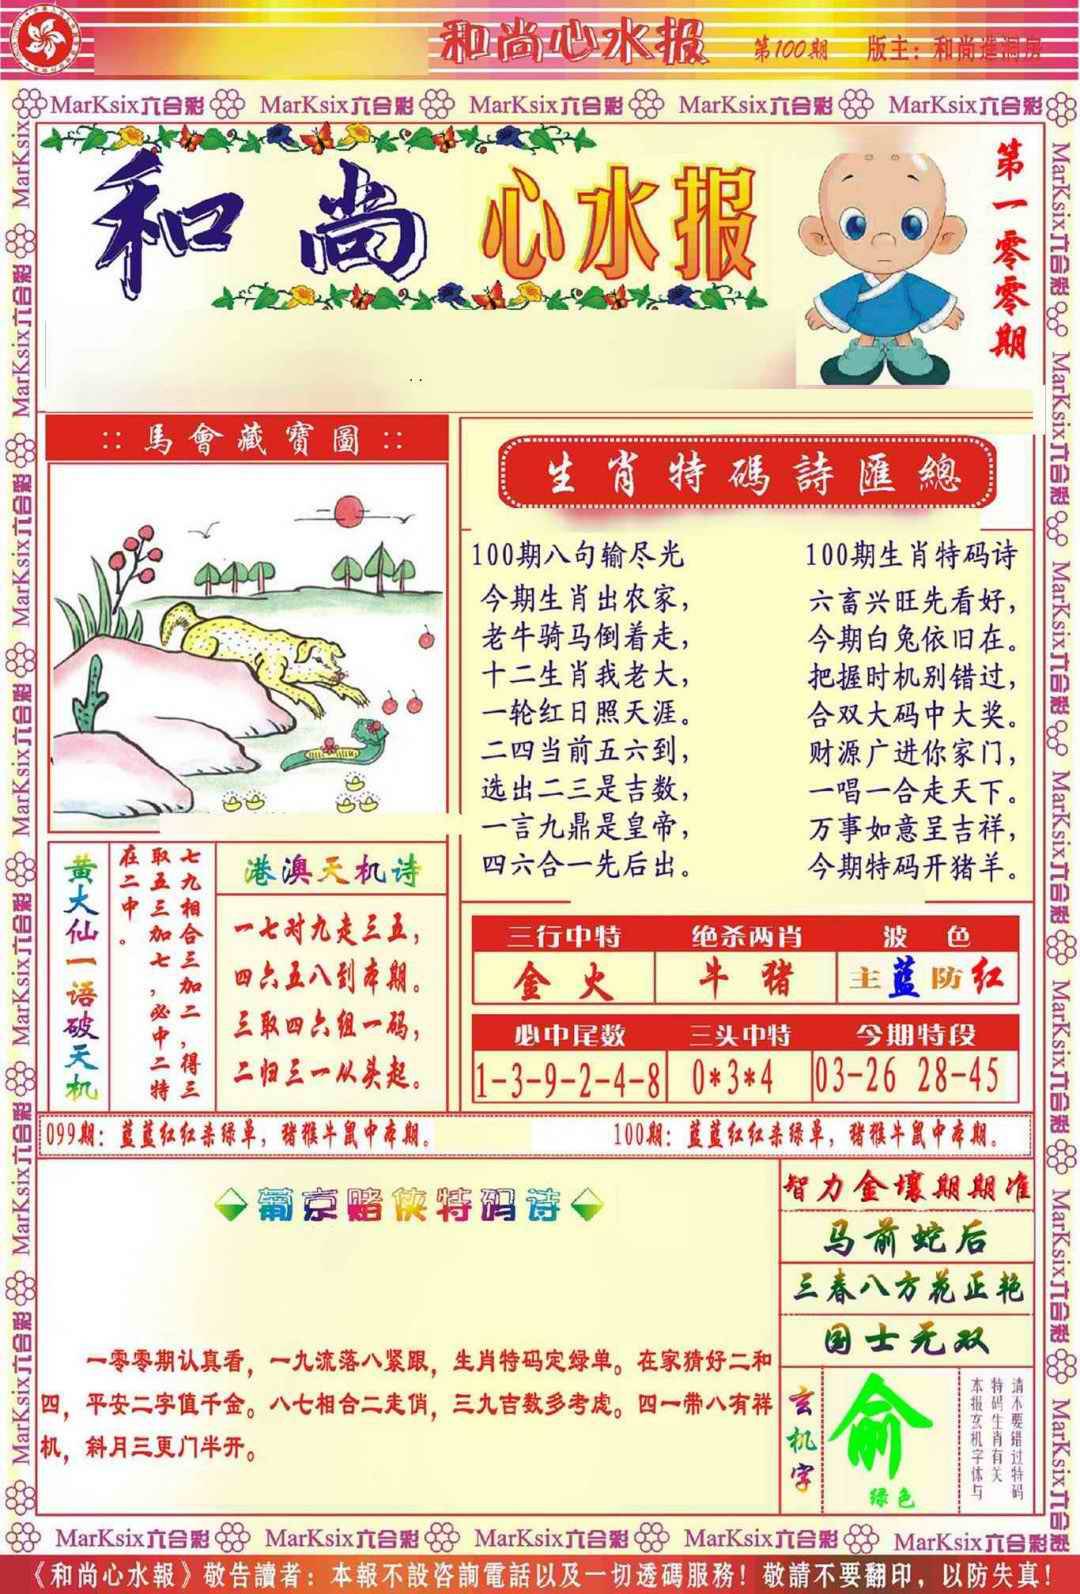 和尚心水报 第100期 版主：和尚進洞房
MarKsix六合彩 MarKsix六合彩 MarKsix六合彩 MarKsix六合彩 MarKsix六合彩
和尚 心水报
第一零零期
:: 馬會藏寶圖 ::
生肖特碼詩匯總
100期八句输尽光
今期生肖出农家，
老牛骑马倒着走，
十二生肖我老大，
一轮红日照天涯。
二四当前五六到，
选出二三是吉数，
一言九鼎是皇帝，
四六合一先后出。
100期生肖特码诗
六畜兴旺先看好，
今期白兔依旧在。
把握时机别错过，
合双大码中大奖。
财源广进你家门，
一唱一合走天下。
万事如意呈吉祥，
今期特码开猪羊。
黄大仙一语破天机
七九相合三加二，得三
取五三加七，必中二特
在二中。
港澳天机诗
一七对九走三五，
四六五八到本期。
三取四六组一码，
二归三一从头起。
三行中特 绝杀两肖 波色
金火 牛猪 主蓝防红
必中尾数 三头中特 今期特段
1-3-9-2-4-8 0*3*4 03-26 28-45
099期：蓝蓝红红杀绿单，猪猴牛鼠中本期。 100期：蓝蓝红红杀绿单，猪猴牛鼠中本期。
葡京赌侠特码诗
一零零期认真看，一九流落八紧跟，生肖特码定绿单。在家猜好二和
四，平安二字值千金。八七相合二走俏，三九吉数多考虑。四一带八有祥
机，斜月三更门半开。
智力金壤期期准
马前蛇后
三春八方花正艳
国士无双
玄机字
俞
绿色
请不要错过特码
特码生肖有关
本报玄机字体与
MarKsix六合彩 MarKsix六合彩 MarKsix六合彩 MarKsix六合彩 MarKsix六合彩
《和尚心水报》敬告讀者：本報不設咨詢電話以及一切透碼服務！敬請不要翻印，以防失真！